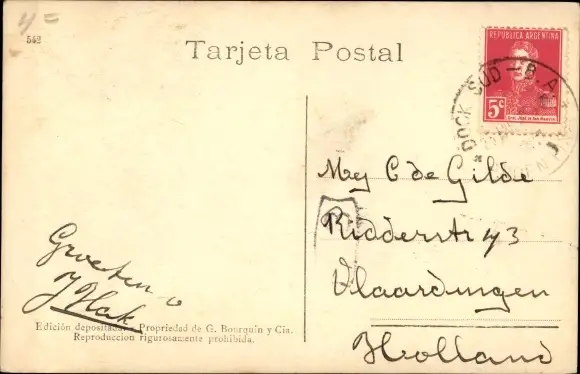 4=
542
Tarjeta Postal
REPUBLICA ARGENTINA
5c
DOCK SUD - B.A.
Mej C de Gilde
Ridderstr 43
Vlaardingen
Holland
Groeten
J Hak
Edición depositada - Propiedad de G. Bourquin y Cia.
Reproduccion rigurosamente prohibida.